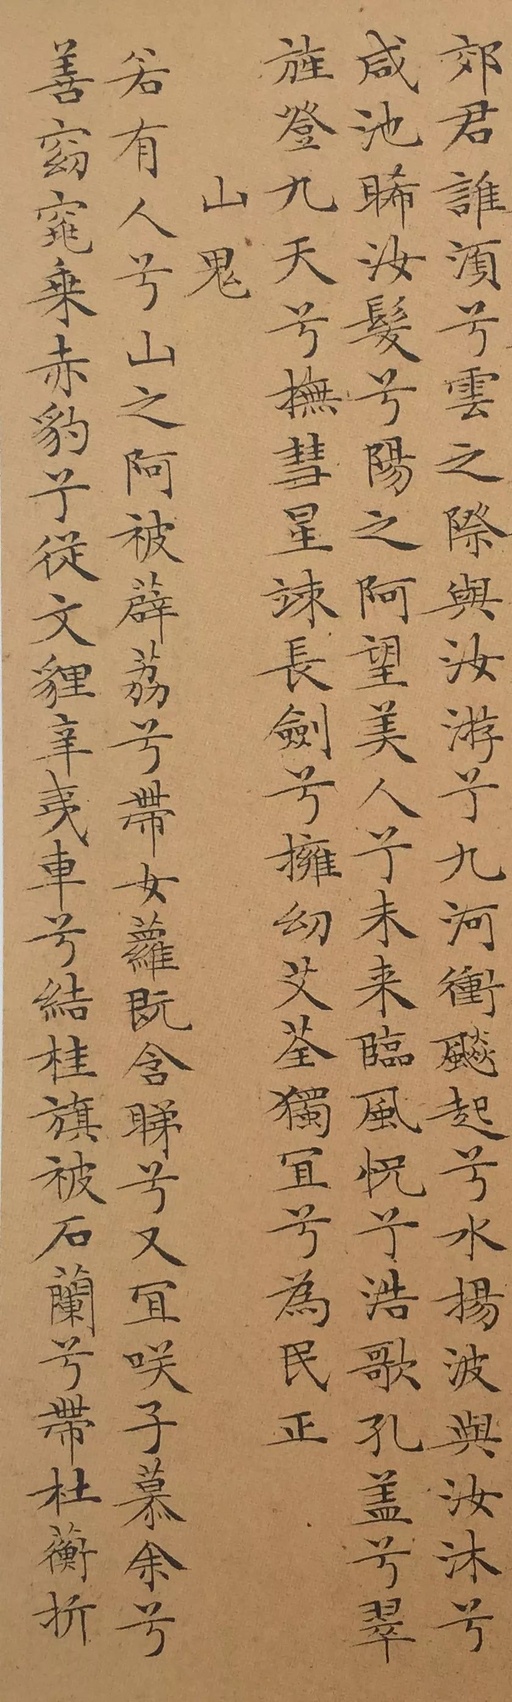 郊君誰湏兮雲之際與汝游兮九河衝飈起兮水揚波與汝沐兮
咸池晞汝髮兮陽之阿望美人兮未来臨風怳兮浩歌孔盖兮翠
旌登九天兮撫彗星竦長劍兮擁幼艾荃獨冝兮為民正
山鬼
若有人兮山之阿被薜荔兮帶女蘿既含睇兮又冝咲子慕余兮
善窈窕乗赤豹兮從文貍辛夷車兮結桂旗被石蘭兮帶杜蘅折